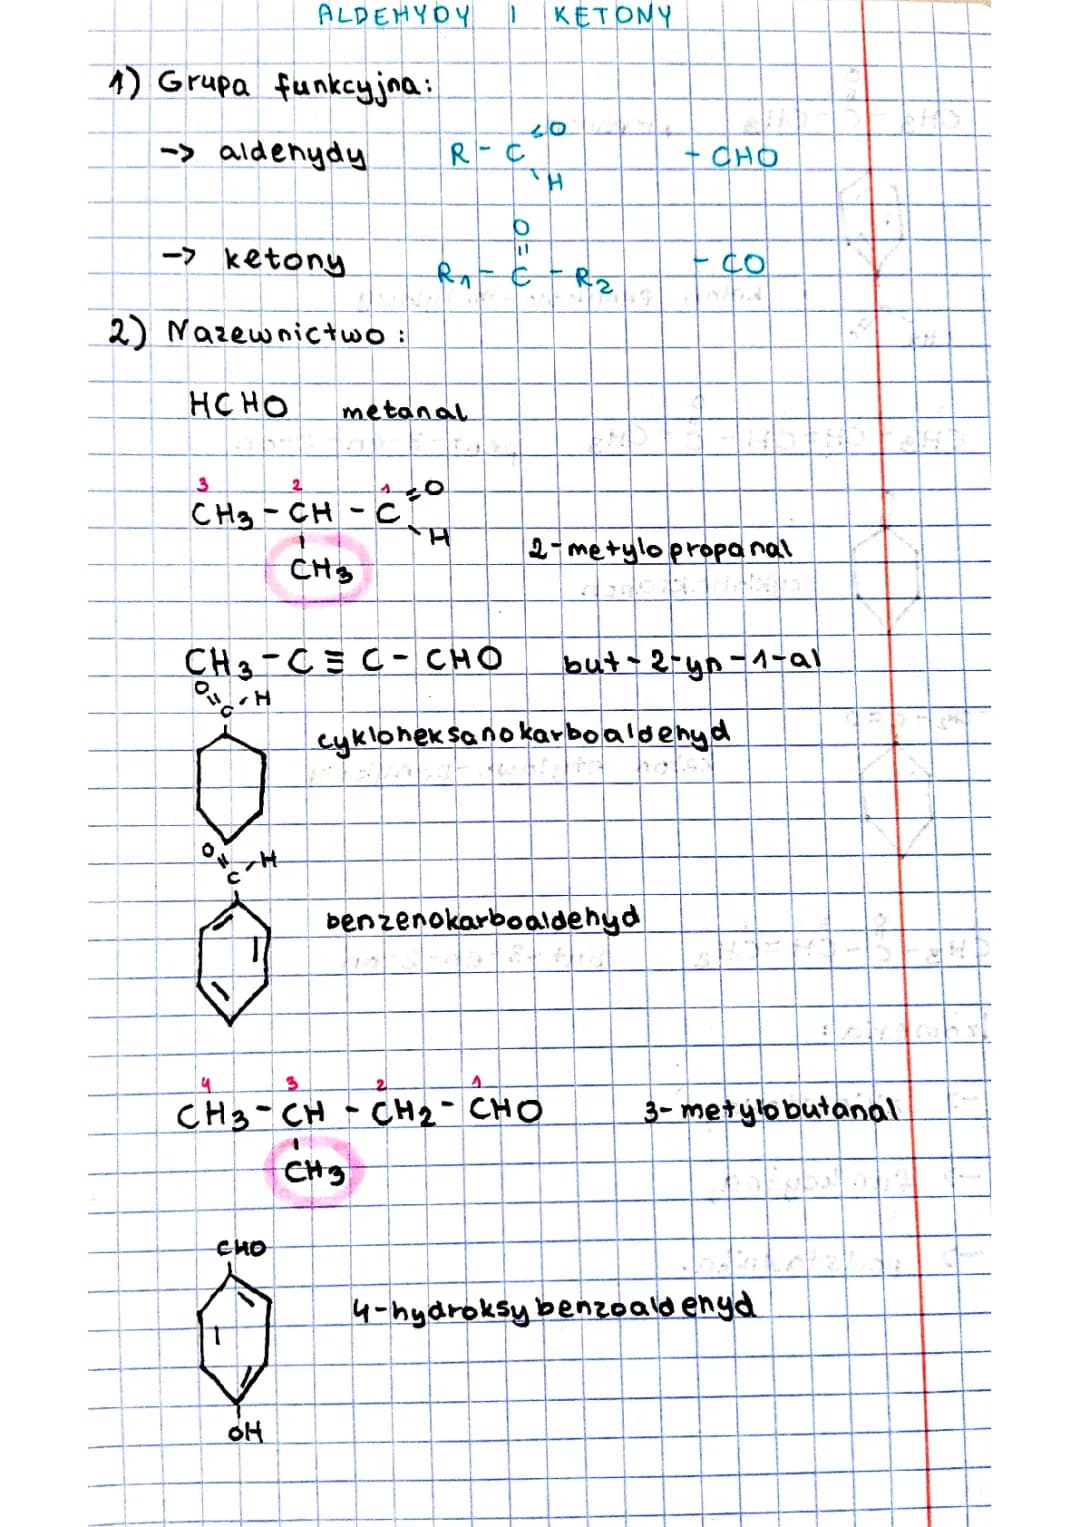 ALDEHYDY I KETONY
1) Grupa funkcyjna:
-> aldehydy R - C =O - CHO
H
O
=
-> ketony R1 - C - R2 - CO
2) Nazewnictwo :
HCHO metanal
3 2 1
CH3 - CH - C =O
H
CH3 2-metylopropanal
CH3 - C ≡ C - CHO but-2-yn-1-al
O = C - H
cykloheksanokarboaldehyd
O = C - H
benzenokarboaldehyd
4 3 2 1
CH3 - CH - CH2 - CHO 3-metylobutanal
CH3
CHO
4-hydroksybenzoaldehyd
OH